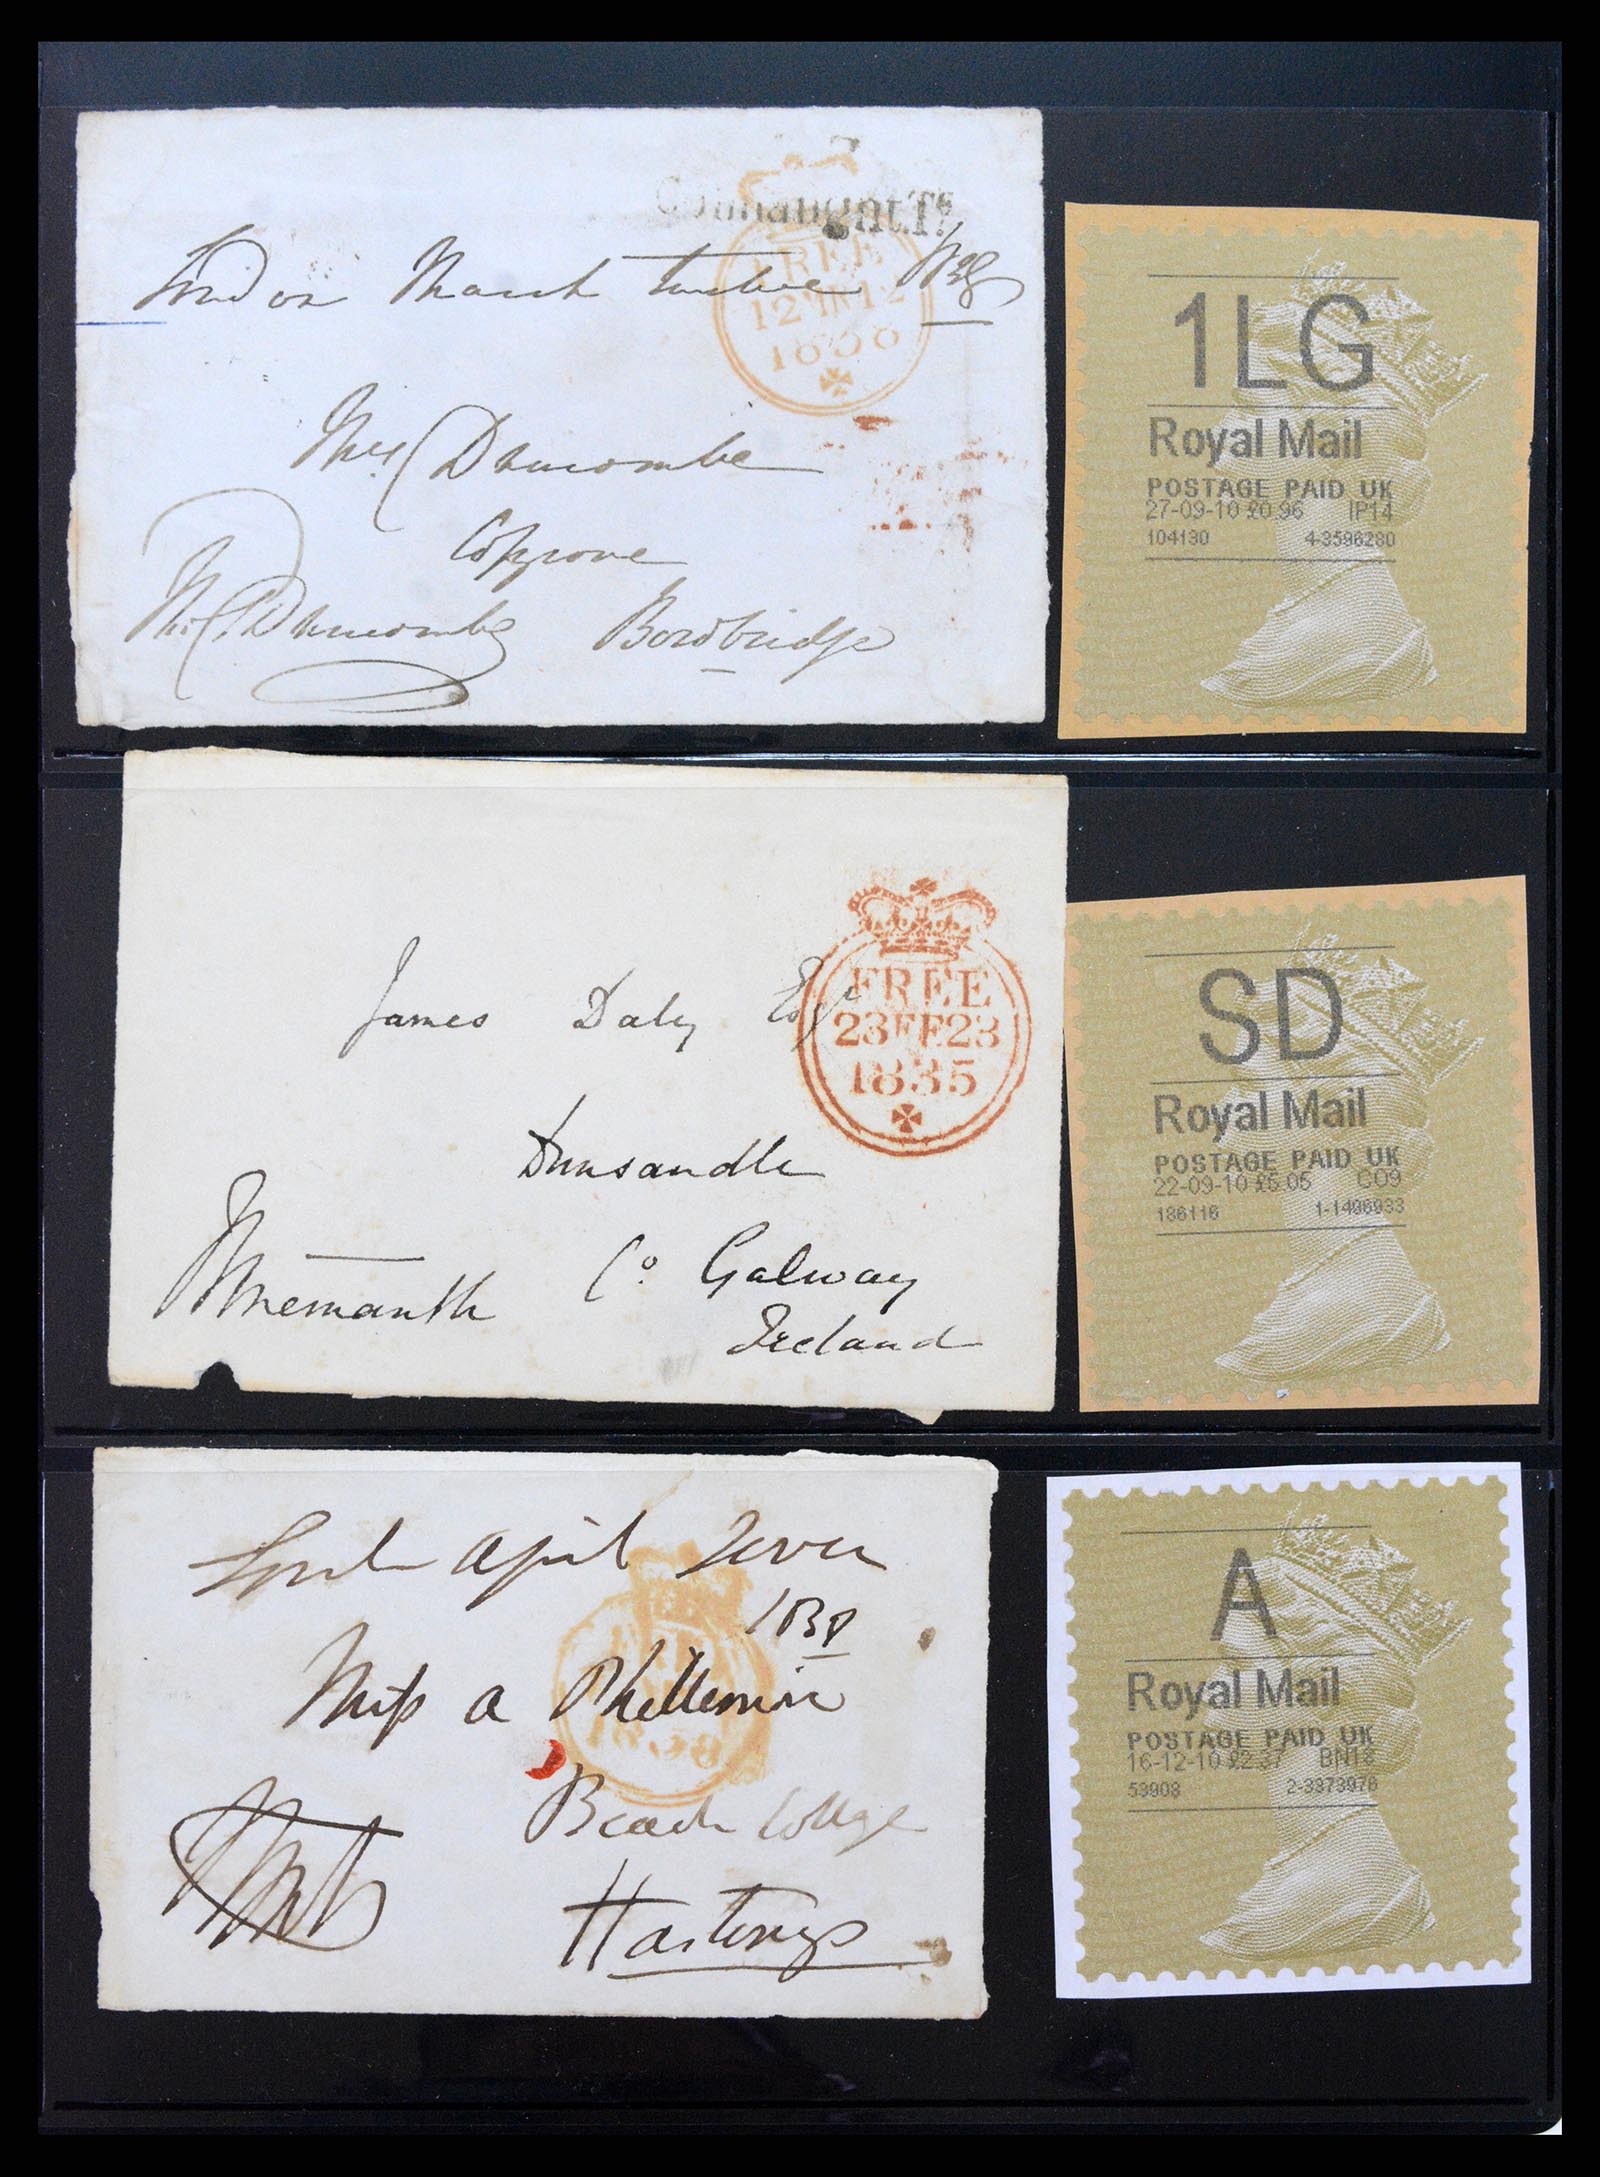 Connaught.T.
London March twelve 1838
FREE
12MR12
1838
Mrs Duncombe
Copgrove
Borobridge
1LG
Royal Mail
POSTAGE PAID UK
27-09-10 £0.96 IP14
104130 4-3596280
James Daly Esqr
FREE
23FE23
1835
Dunsandle
Co. Galway
Ireland
SD
Royal Mail
POSTAGE PAID UK
22-09-10 £5.05 CO9
186116 1-1496933
April Seven
1838
Miss A
1838
Beach Cottage
Hastings
A
Royal Mail
POSTAGE PAID UK
16-12-10 £2.37 BN18
53908 2-3373976